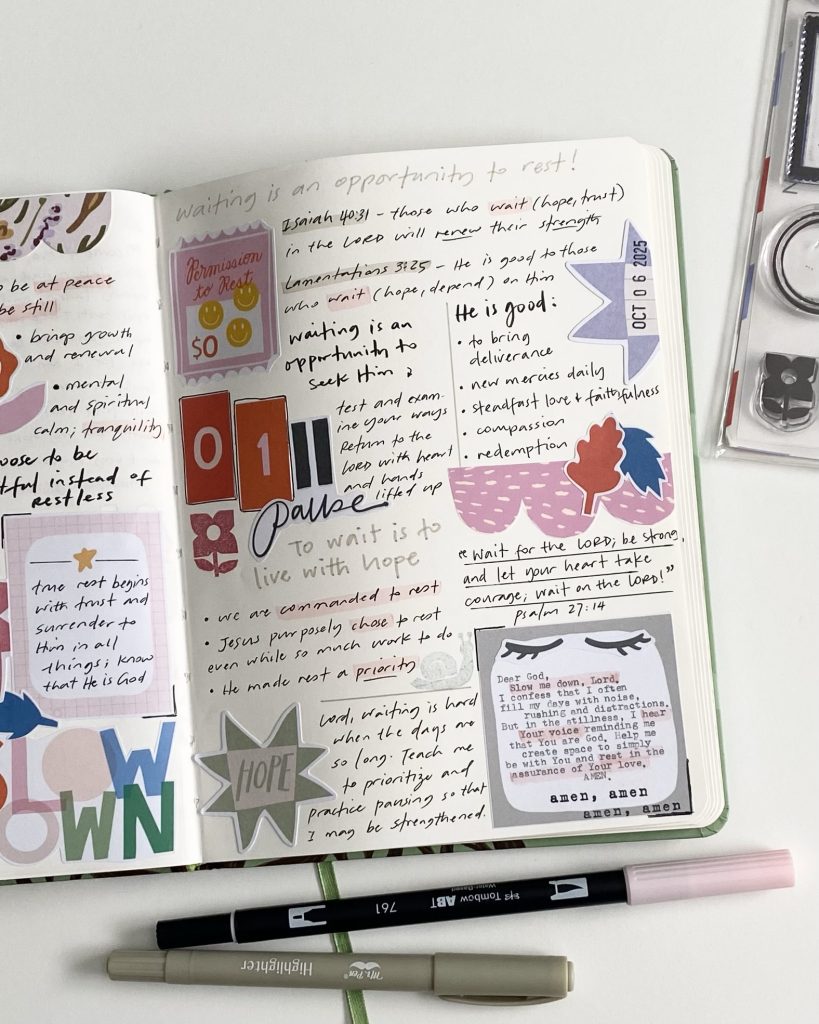 be at peace
be still
• brings growth
and renewal
• mental
and spiritual
calm; tranquility
to be
instead of
restless
true rest begins
with trust and
surrender to
Him in all
things; know
that He is God
SLOW
OWN
waiting is an opportunity to rest!
Isaiah 40:31 - those who wait (hope, trust)
in the LORD will renew their strength
Lamentations 3:25 - He is good to those
who wait (hope, depend) on Him
Permission
to Rest
$0
waiting is an
opportunity to
seek Him
test and exam-
ine your ways
Return to the
LORD with heart
and hands
lifted up
01
pause
He is good:
• to bring
deliverance
• new mercies daily
• steadfast love & faithfulness
• compassion
• redemption
OCT 06 2025
To wait is to
live with hope
• we are commanded to rest
• Jesus purposely chose to rest
even while so much work to do
• He made rest a priority
"wait for the LORD; be strong,
and let your heart take
courage; wait on the LORD!"
Psalm 27:14
HOPE
Lord, waiting is hard
when the days are
so long. Teach me
to prioritize and
practice pausing so that
I may be strengthened.
Dear God,
Slow me down, Lord.
I confess that I often
fill my days with noise,
rushing and distractions.
But in the stillness, I hear
Your voice reminding me
that You are God. Help me
create space to simply
be with You and rest in the
assurance of Your love.
AMEN.
amen, amen
amen, amen
761
Tombow ABT
Water-Based
Mr. Pen®
Highlighter